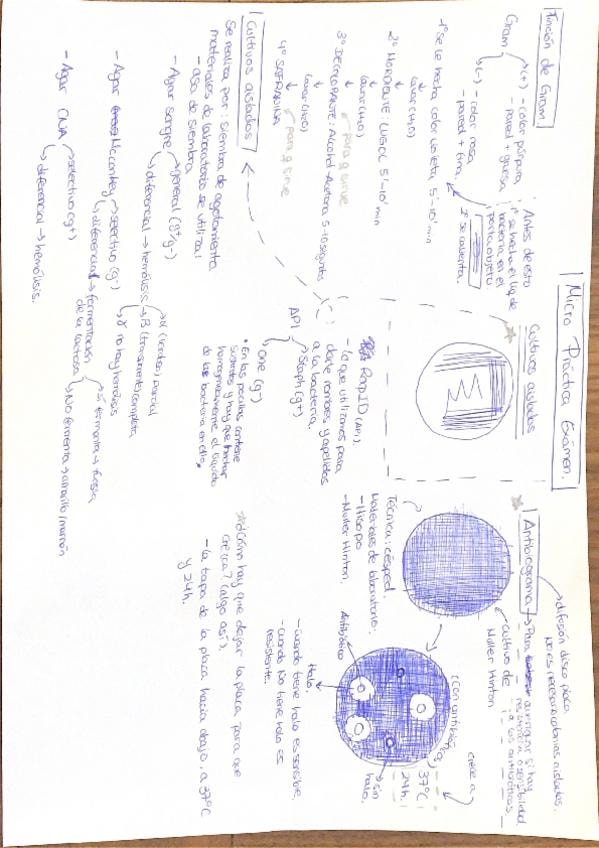 Micro Práctica Exámen.
Tinción de Gram
Gram
(+) - color púrpura
- pared + gruesa
(-) - color rosa
- pared + fina.
Antes de esto
1º se hecha el líq de
bacteria en el
portaobjeto
2º se calienta.
1º se le hecha color violeta 5'-10' min
lavar (H2O)
2º MORDIENTE: LUGOL 5'-10' min
lavar (H2O)
para q sirve
3º DECOLORANTE: Alcohol-Acetona 5-10 segundos
lavar (H2O)
para q sirve
4º SAFRANINA
Cultivos aislados
Se realiza por: siembra de agotamiento
materiales de laboratorio se utiliza:
- asa de siembra
- Agar sangre
general (g+/g-)
diferencial → hemólisis
α (verdosa) parcial
β (transparente) completa
γ no hay hemólisis
- Agar McConkey
selectivo (g-)
diferencial → fermentación
de la lactosa
si fermenta → fucsia
No fermenta → amarillo/marrón
- Agar CNA
selectivo (g+)
diferencial → hemólisis.
Cultivos aislados
RapID (API).
- lo que utilizamos para
darle nombres y apellidos
a la bacteria.
API
Staph (g+)
One (g-)
* En las pocillos contiene
sustratos y hay que hechar
homogéneamente el líquido
de la bacteria en ello.
Antibiograma
difusión disco placa
No es necesario colonias aisladas.
Para averiguar si hay
resistencia o sensibilidad
a los antibióticos
Cultivo de
Muller Hinton
Técnica: césped.
Materiales de laboratorio:
- Hisopo
- Muller Hinton.
(Con antibiótico)
crece a
37ºC
24h.
sin
halo.
Antibiótico
Halo.
- Cuando tiene halo es sensible.
- Cuando No tiene halo es
resistente.
¿Cómo hay que dejar la placa para que
crezca? (algo así).
- La tapa de la placa hacia abajo, a 37ºC
y 24h.